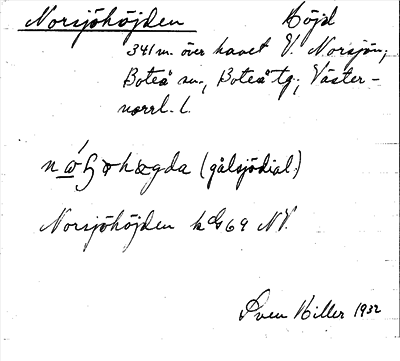 Norsjöhöjden Höjd
341 m. över havet V. Norsjön;
Boteå sn., Boteå tg., Väster-
norrl. l.
(gålsjödial.)
Norsjöhöjden k G 69 NV.
Sven Hiller 1932